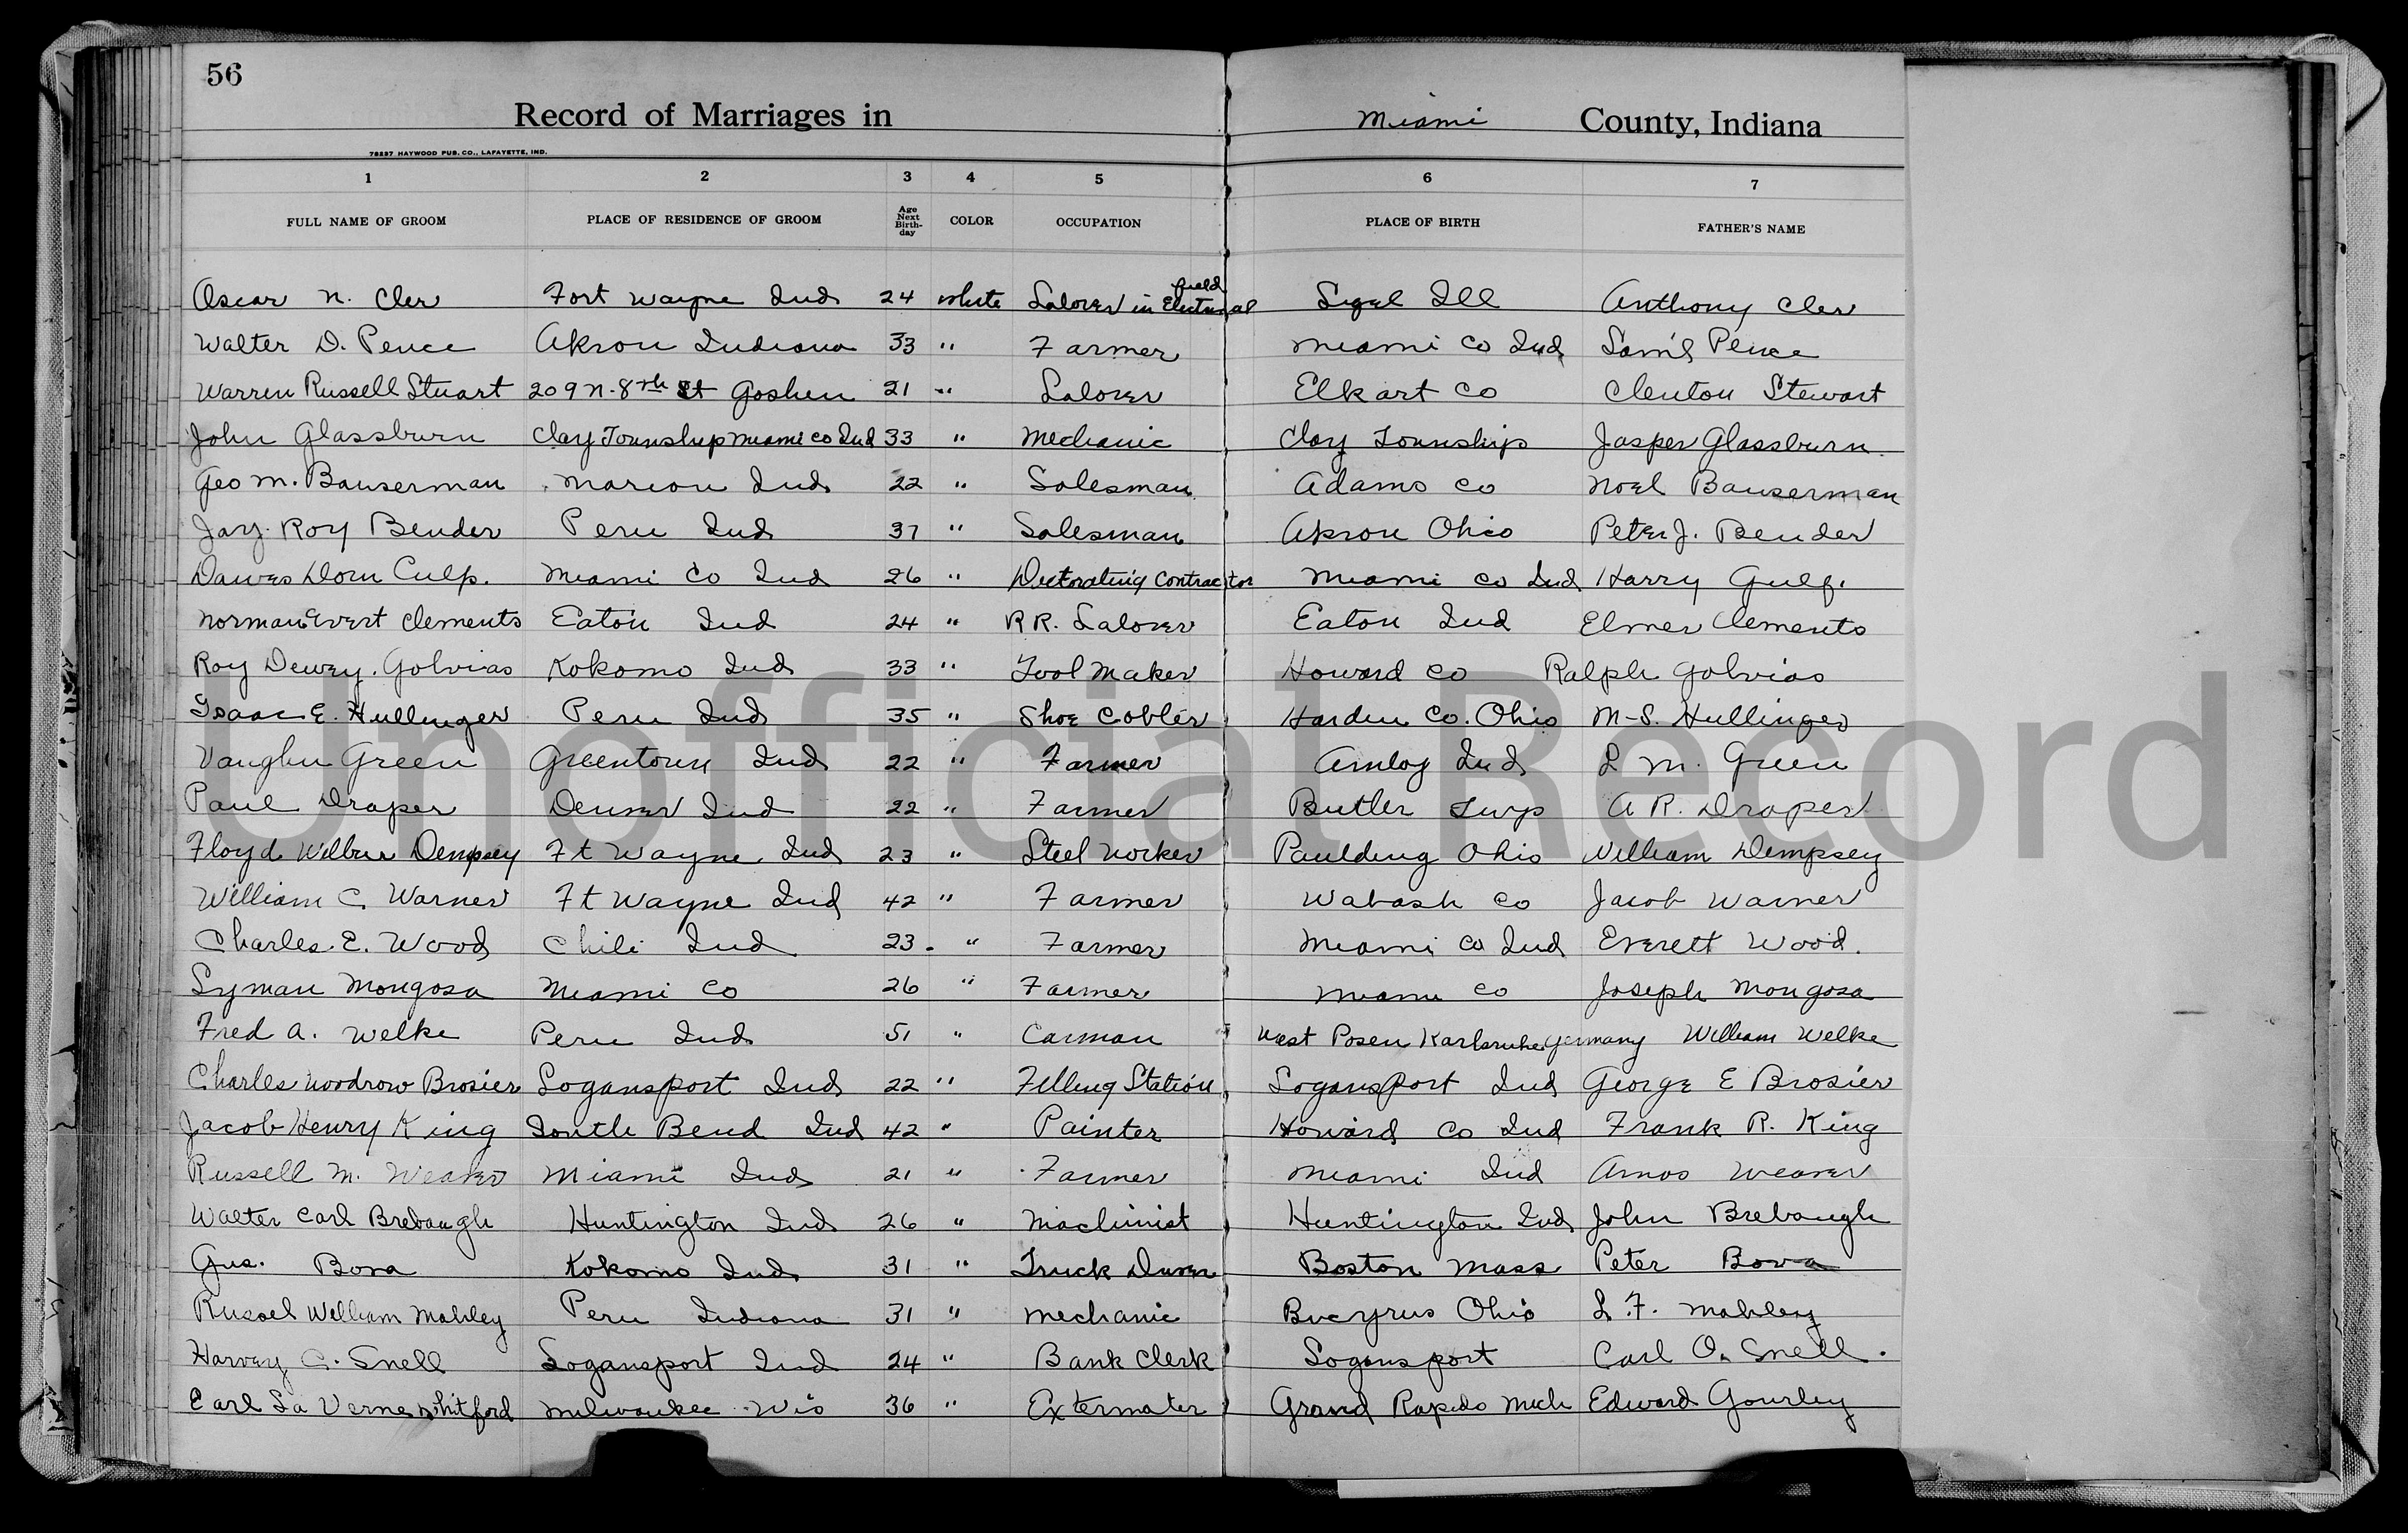 56
Record of Marriages in Miami County, Indiana
78237 HAYWOOD PUB. CO., LAFAYETTE, IND.
1 2 3 4 5 6 7
FULL NAME OF GROOM PLACE OF RESIDENCE OF GROOM Age Next Birth-day COLOR OCCUPATION PLACE OF BIRTH FATHER'S NAME
Oscar N. Cler Fort Wayne Ind 24 white Laborer in Electrical field Sigel Ill Anthony Cler
Walter D. Pence Akron Indiana 33 " Farmer Miami Co Ind Sam'l Pence
Warren Russell Stuart 209 N. 8th St Goshen 21 " Laborer Elkart Co Clenton Stewart
John Glassburn Clay Township Miami Co Ind 33 " Mechanic Clay Township Jasper Glassburn
Geo M. Bauserman Marion Ind 22 " Salesman Adams Co Noel Bauserman
Jay Roy Bender Peru Ind 37 " Salesman Akron Ohio Peter J. Bender
Dawes Dorn Culp. Miami Co Ind 26 " Decorating Contractor Miami Co Ind Harry Gulp.
Norman Evert Clements Eaton Ind 24 " R R. Laborer Eaton Ind Elmer Clements
Roy Dewey Golvias Kokomo Ind 33 " Tool Maker Howard Co Ralph Golvias
Isaac E. Hullinger Peru Ind 35 " Shoe Cobler Harden Co. Ohio M-S. Hullinger
Vaughn Green Greentown Ind 22 " Farmer Amboy Ind L M. Green
Paul Draper Denver Ind 22 " Farmer Butler Twp A R. Draper
Floyd Wilbur Dempsey Ft Wayne Ind 23 " Steel Worker Paulding Ohio William Dempsey
William C. Warner Ft Wayne Ind 42 " Farmer Wabash Co Jacob Warner
Charles E. Wood Chili Ind 23 " Farmer Miami Co Ind Everett Wood.
Lyman Mongosa Miami Co 26 " Farmer Miami Co Joseph Mongosa
Fred A. Welke Peru Ind 51 " Carman West Posen Karlsruhe Germany William Welke
Charles Woodrow Brosier Logansport Ind 22 " Filling Station Logansport Ind George E Brosier
Jacob Henry King South Bend Ind 42 " Painter Howard Co Ind Frank R. King
Russell M. Weaver Miami Ind 21 " Farmer Miami Ind Amos Weaver
Walter Carl Brebaugh Huntington Ind 26 " Machinist Huntington Ind John Brebaugh
Gus. Bova Kokomo Ind 31 " Truck Driver Boston Mass Peter Bova
Russel William Mahley Peru Indiana 31 " Mechanic Bucyrus Ohio L. F. Mahley
Harvey C. Snell Logansport Ind 24 " Bank Clerk Logansport Carl O. Snell.
Earl La Verne Whitford Milwaukee Wis 36 " Extermater Grand Rapids Mich Edward Gourley
Unofficial Record